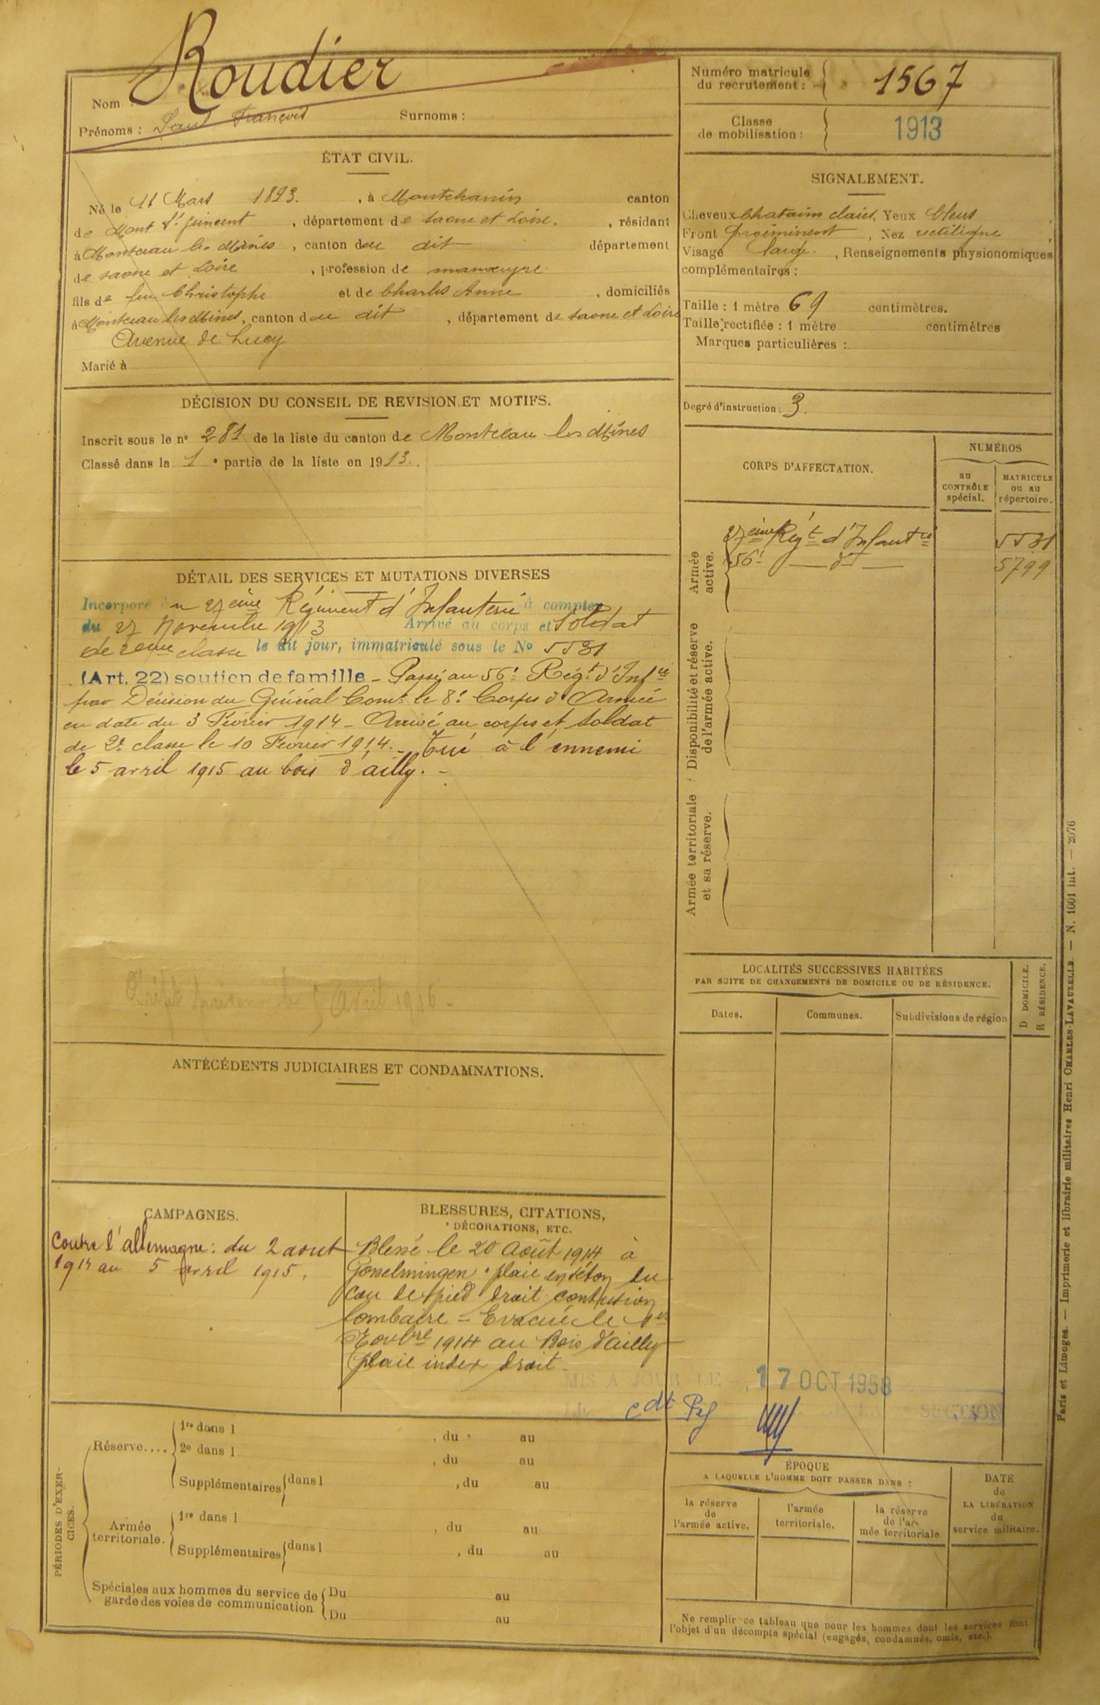 Nom : Roudier
Prénoms : Louis François Surnoms :
Numéro matricule du recrutement : 1567
Classe de mobilisation : 1913
ÉTAT CIVIL.
Né le 11 Mars 1893, à Montchanin canton
de Mont St Vincent, département de Saone et Loire, résidant
à Montceau les Mines, canton du dit département
de Saone et Loire, profession de manœuvre
fils de feu Christophe et de Charles Anne, domiciliés
à Montceau les Mines, canton du dit, département de Saone et Loire
Avenue de Lucy
Marié à
SIGNALEMENT.
Cheveux chatains clairs. Yeux bleus
Front proéminent, Nez rectiligne
Visage large, Renseignements physionomiques
complémentaires :
Taille : 1 mètre 69 centimètres.
Taille rectifiée : 1 mètre centimètres
Marques particulières :
Degré d'instruction : 3.
DÉCISION DU CONSEIL DE REVISION ET MOTIFS.
Inscrit sous le n° 281 de la liste du canton de Montceau les Mines
Classé dans la 1e partie de la liste en 1913.
CORPS D'AFFECTATION.
NUMÉROS
AU CONTRÔLE spécial.
MATRICULE OU AU répertoire.
Armée active.
27ème Régt d'Infantrie 5531
56e — d° — 5799
Disponibilité et réserve de l'armée active.
Armée territoriale et sa réserve.
DÉTAIL DES SERVICES ET MUTATIONS DIVERSES
Incorporé au 27ème Régiment d'Infanterie à compter
du 27 Novembre 1913 Arrivé au corps et Soldat
de 2eme classe le dit jour, immatriculé sous le No 5531
(Art. 22) soutien de famille - Passé au 56e Régt d'Infie
par Décision du Général Comt le 8e Corps d'Armée
en date du 3 Février 1914 - Arrivé au corps et soldat
de 2e classe le 10 Février 1914. - Tué à l'ennemi
le 5 avril 1915 au bois d'ailly. -
avril 1916 -
LOCALITÉS SUCCESSIVES HABITÉES
PAR SUITE DE CHANGEMENTS DE DOMICILE OU DE RÉSIDENCE.
Dates. Communes. Subdivisions de région
D DOMICILE.
R RÉSIDENCE.
ANTÉCÉDENTS JUDICIAIRES ET CONDAMNATIONS.
CAMPAGNES.
Contre l'allemagne : du 2 aout
1914 au 5 avril 1915.
BLESSURES, CITATIONS,
DÉCORATIONS, ETC.
Blessé le 20 Août 1914 à
Gosselmingen plaie en séton du
cou de pied droit contusion
lombaire - Evacué le 1er
Novbre 1914 au Bois d'ailly
plaie index droit.
MIS A JOUR LE 17 OCT 1958
cdt
PÉRIODES D'EXERCICES.
Réserve.... 1re dans l , du au
2e dans l , du au
Supplémentaires dans l , du au
Armée territoriale. 1re dans l , du au
Supplémentaires dans l , du au
Spéciales aux hommes du service de garde des voies de communication Du au
Du au
ÉPOQUE
A LAQUELLE L'HOMME DOIT PASSER DANS :
la réserve de l'armée active.
l'armée territoriale.
la réserve de l'armée territoriale
DATE de LA LIBÉRATION du service militaire.
Ne remplir ce tableau que pour les hommes dont les services sont
l'objet d'un décompte spécial (engagés, condamnés, omis, etc.).
Paris et Limoges. — Imprimerie et librairie militaires Henri CHARLES-LAVAUZELLE. — N. 1001 int. — 2076